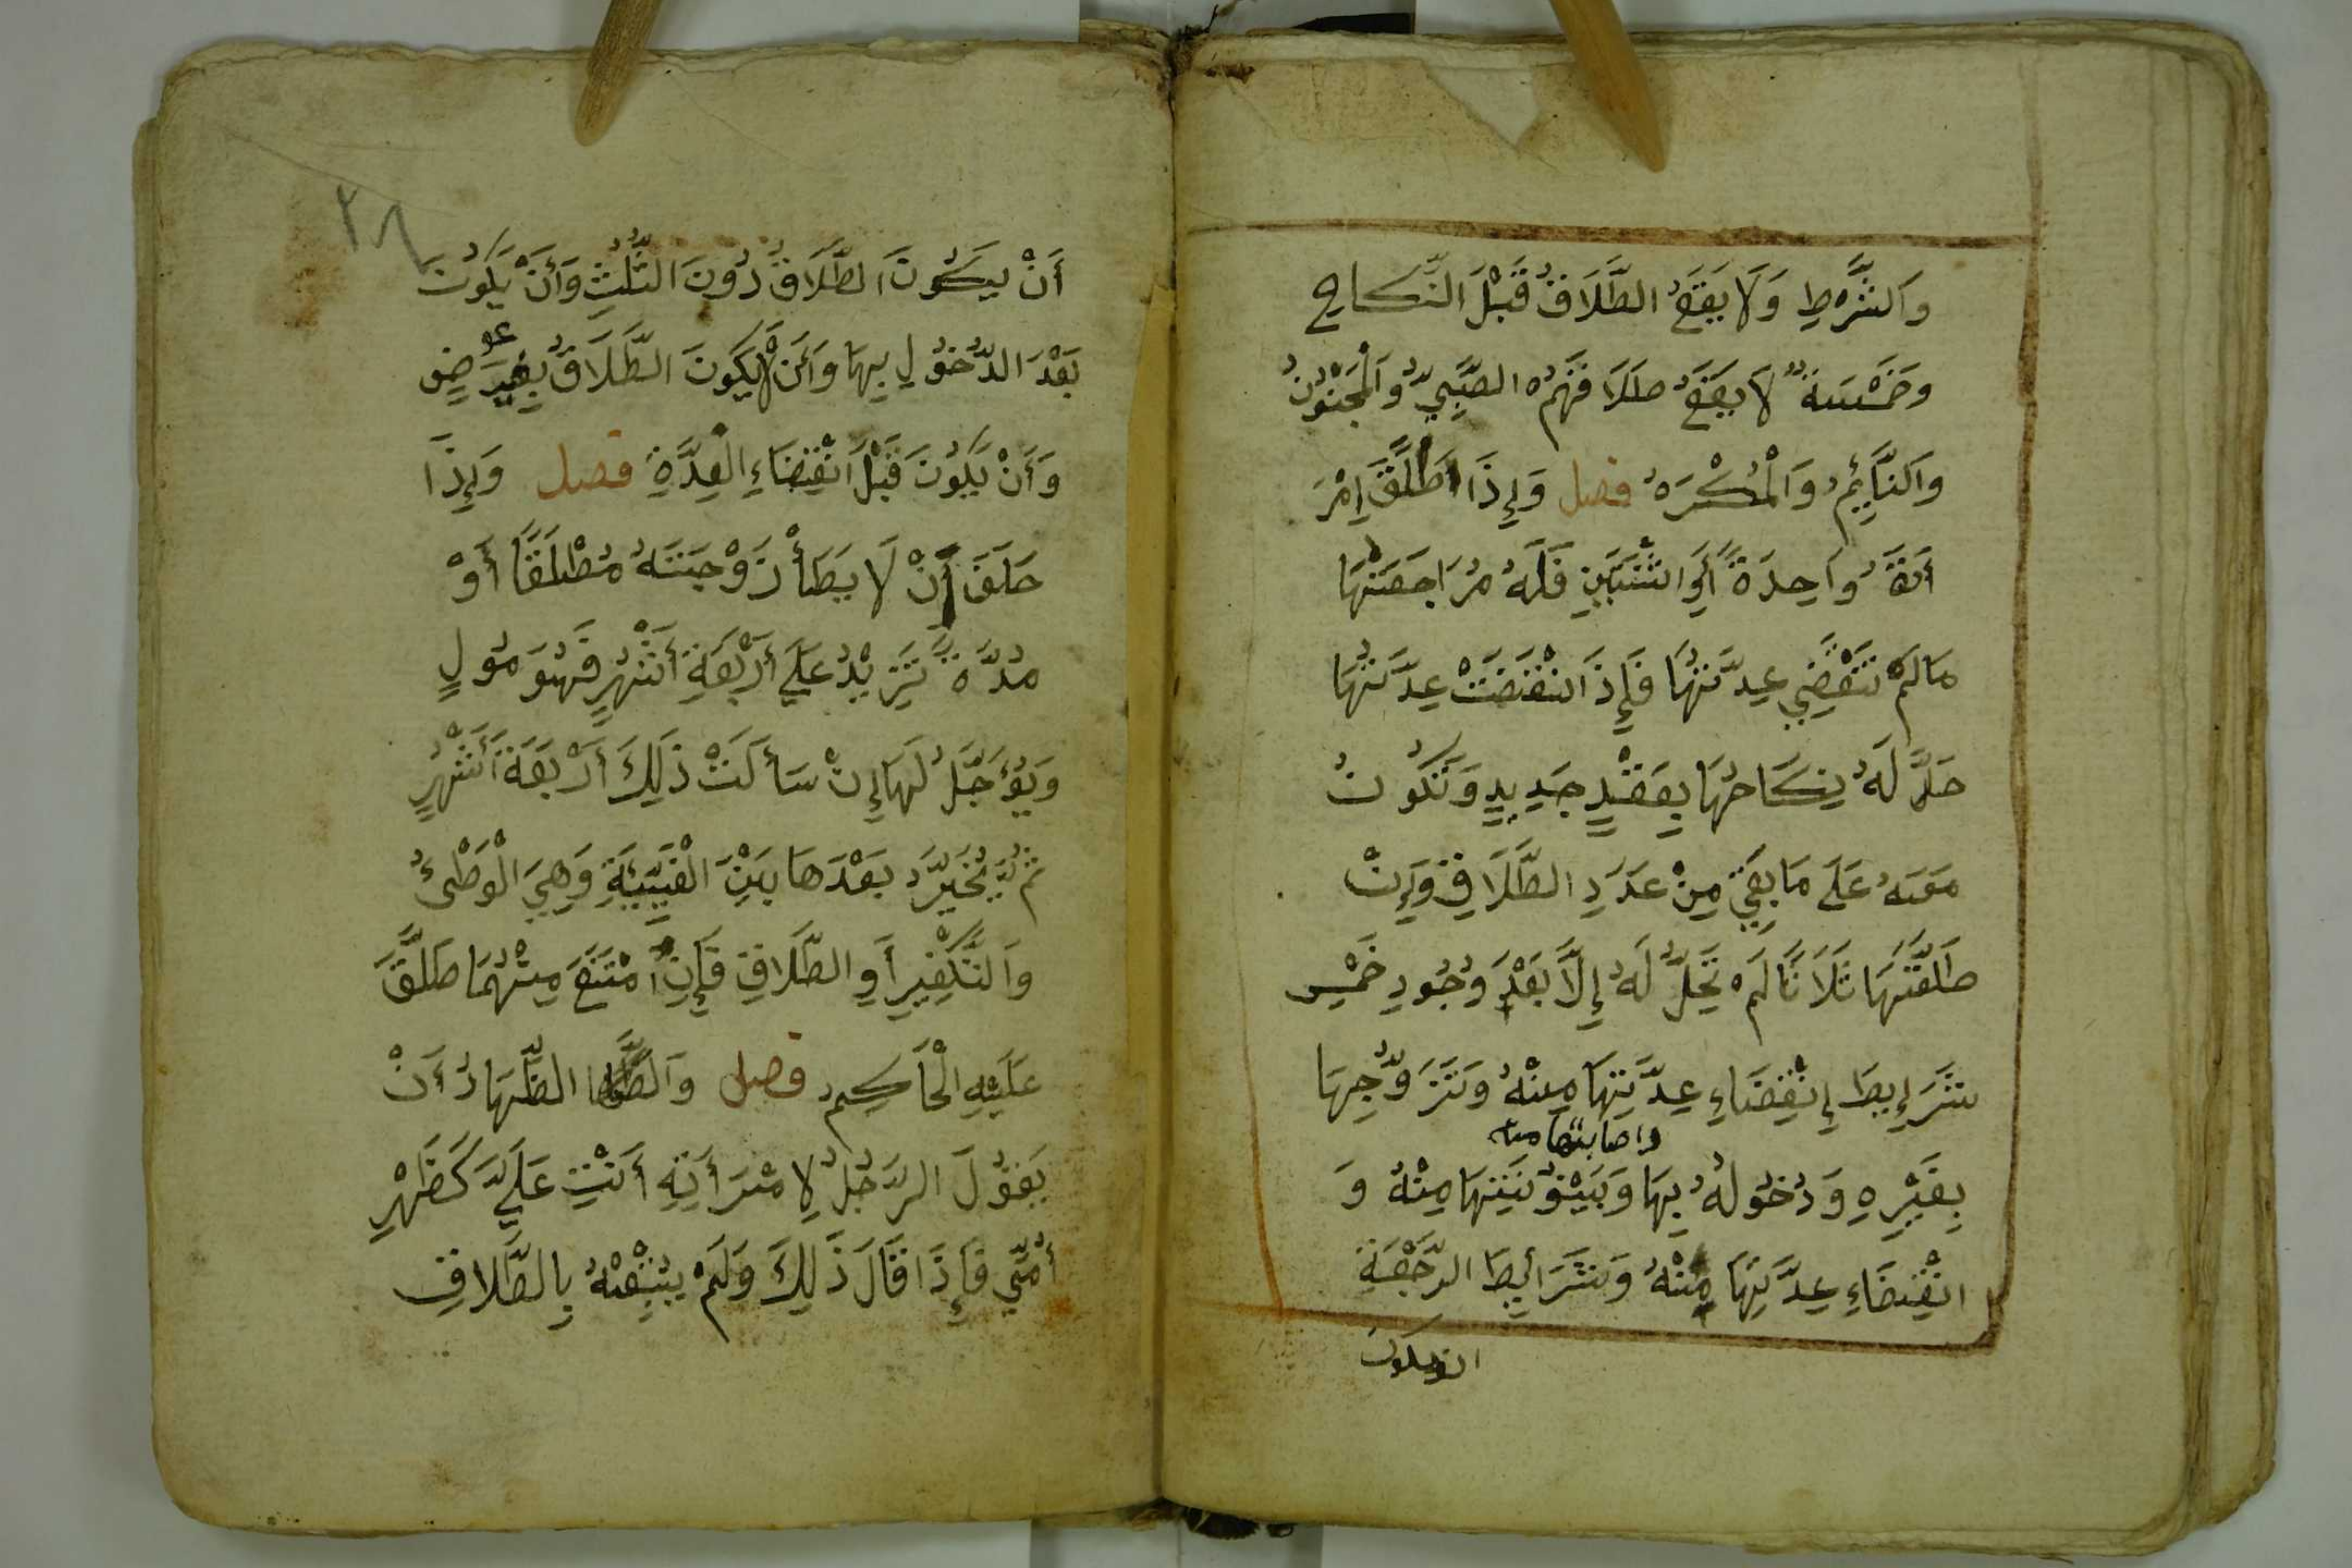 وَالشَّرْطِ وَلَا يَقَعُ الطَّلَاقُ قَبْلَ النِّكَاحِ
وَخَمْسَةٌ لَا يَقَعُ طَلَاقُهُمْ الصَّبِيُّ وَالْمَجْنُونُ
وَالنَّايِمُ وَالْمُكْرَهُ فصل وَإِذَا طَلَّقَ اِمْرَ
أَتَهُ وَاحِدَةً أَوِ اثْنَتَيْنِ فَلَهُ مُرَاجَعَتُهَا
مَالَمْ تَنْقَضِي عِدَّتُهَا فَإِذَا انْقَضَتْ عِدَّتُهَا
حَلَّ لَهُ نِكَاحُهَا بِعَقْدٍ جَدِيدٍ وَتَكُونُ
مَعَهُ عَلَى مَا بَقِيَ مِنْ عَدَدِ الطَّلَاقِ وَإِنْ
طَلَّقَهَا ثَلَاثًا لَمْ تَحِلُّ لَهُ إِلَّا بَعْدَ وُجُودِ خَمْسِ
شَرَايِطَ إِنْقِضَاءِ عِدَّتِهَا مِنْهُ وَتَزَوُّجِهَا
واصابتها منه
بِغَيْرِهِ وَدُخُولُهُ بِهَا وَبَيْنُونَتِهَا مِنْهُ وَ
انْقِضَاءِ عِدَّتِهَا مِنْهُ وَشَرَائِطَ الرَّجْعَةِ
ان يكون
٣٨
أَنْ يَكُونَ الطَّلَاقُ دُونَ الثَّلَثِ وَأَنْ يَكُونَ
بَعْدَ الدُّخُولِ بِهَا وَأَنْ لَا يَكُونَ الطَّلَاقُ بِغَيْرِ عوضٍ
وَأَنْ يَكُونَ قَبْلَ انْقِضَاءِ الْعِدَّةِ فصل وَإِذَا
حَلَفَ أَنْ لَا يَطَأْ زَوْجَتَهُ مُطْلَقًا أَوْ
مُدَّةً تَزِيْدُ عَلَى أَرْبَعَةِ أَشْهُرٍ فَهُوَ مُولٍ
وَيُؤَجَّلُ لَهَا إِنْ سَأَلَتْ ذَلِكَ أَرْبَعَةَ أَشْهُرٍ
ثُمَّ يُخَيَّرُ بَعْدَهَا بَيْنَ الْفَيِّيئَةِ وَهِيَ الْوَطْئُ
وَالتَّكْفِيرِ أَوِ الطَّلَاقِ فَإِنِ امْتَنَعَ مِنْهُمَا طَلَّقَ
عَلَيْهِ الْحَاكِمُ فصل وَالظِّهَارُ أَنْ
يَقُوْلَ الرَّجُلُ لِامْرَأَتِهِ أَنْتِ عَلَيَّ كَظَهْرِ
أُمِّي فَإِذَا قَالَ ذَلِكَ وَلَمْ يُتْبِعْهُ بِالطَّلَاقِ